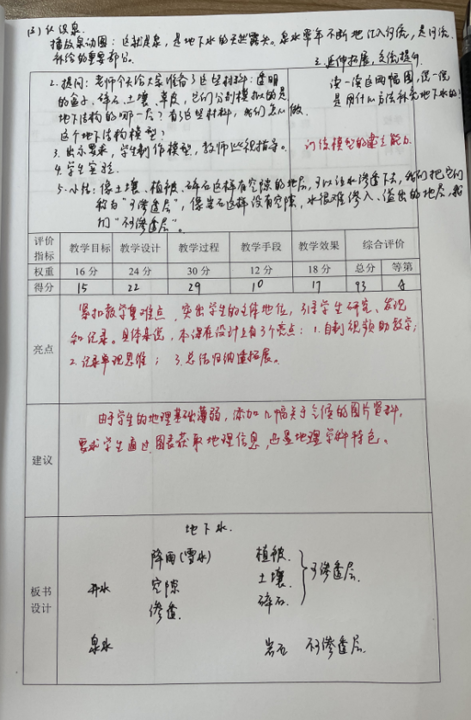 (3) 认识泉
播放泉动图：这就是泉，是地下水的天然露头。泉水常年不断地汇入河流，是河流
补给的重要部分。
3. 延伸拓展，交流提升
读一读这两幅图，说一说
是用什么方法补充地下水的？
2. 提问：老师今天给大家准备了这些材料：透明
的盒子、碎石、土壤、草皮，它们分别模拟的是
地下结构的哪一层？有了这些材料，我们怎么做
这个地下结构模型？
3. 出示要求，学生制作模型，教师巡视指导。
训练模型的建立能力
4. 学生实验
5. 小结：像土壤、植被、碎石这样有空隙的地层，可以让水渗透下去，我们把它们
称为“可渗透层”，像岩石这样没有空隙，水很难渗入、溢出的地层，我
们“不可渗透层”。
评价指标 教学目标 教学设计 教学过程 教学手段 教学效果 综合评价
权重 16分 24分 30分 12分 18分 总分 等第
得分 15 22 29 10 17 93
亮点
紧扣教学重难点，突出学生的主体地位，引导学生研究、发现
和记录。具体来说，本课在设计上有3个亮点：1. 自制视频助教学；
2. 记录单现思维；3. 总结归纳建拓展。
建议
由于学生的地理基础薄弱，添加几幅关于气候的图片资料，
要求学生通过图表获取地理信息，凸显地理学科特色。
板书设计
地下水
降雨(雪水) 植被
井水 空隙 土壤 可渗透层
渗透 碎石
泉水 岩石 不可渗透层